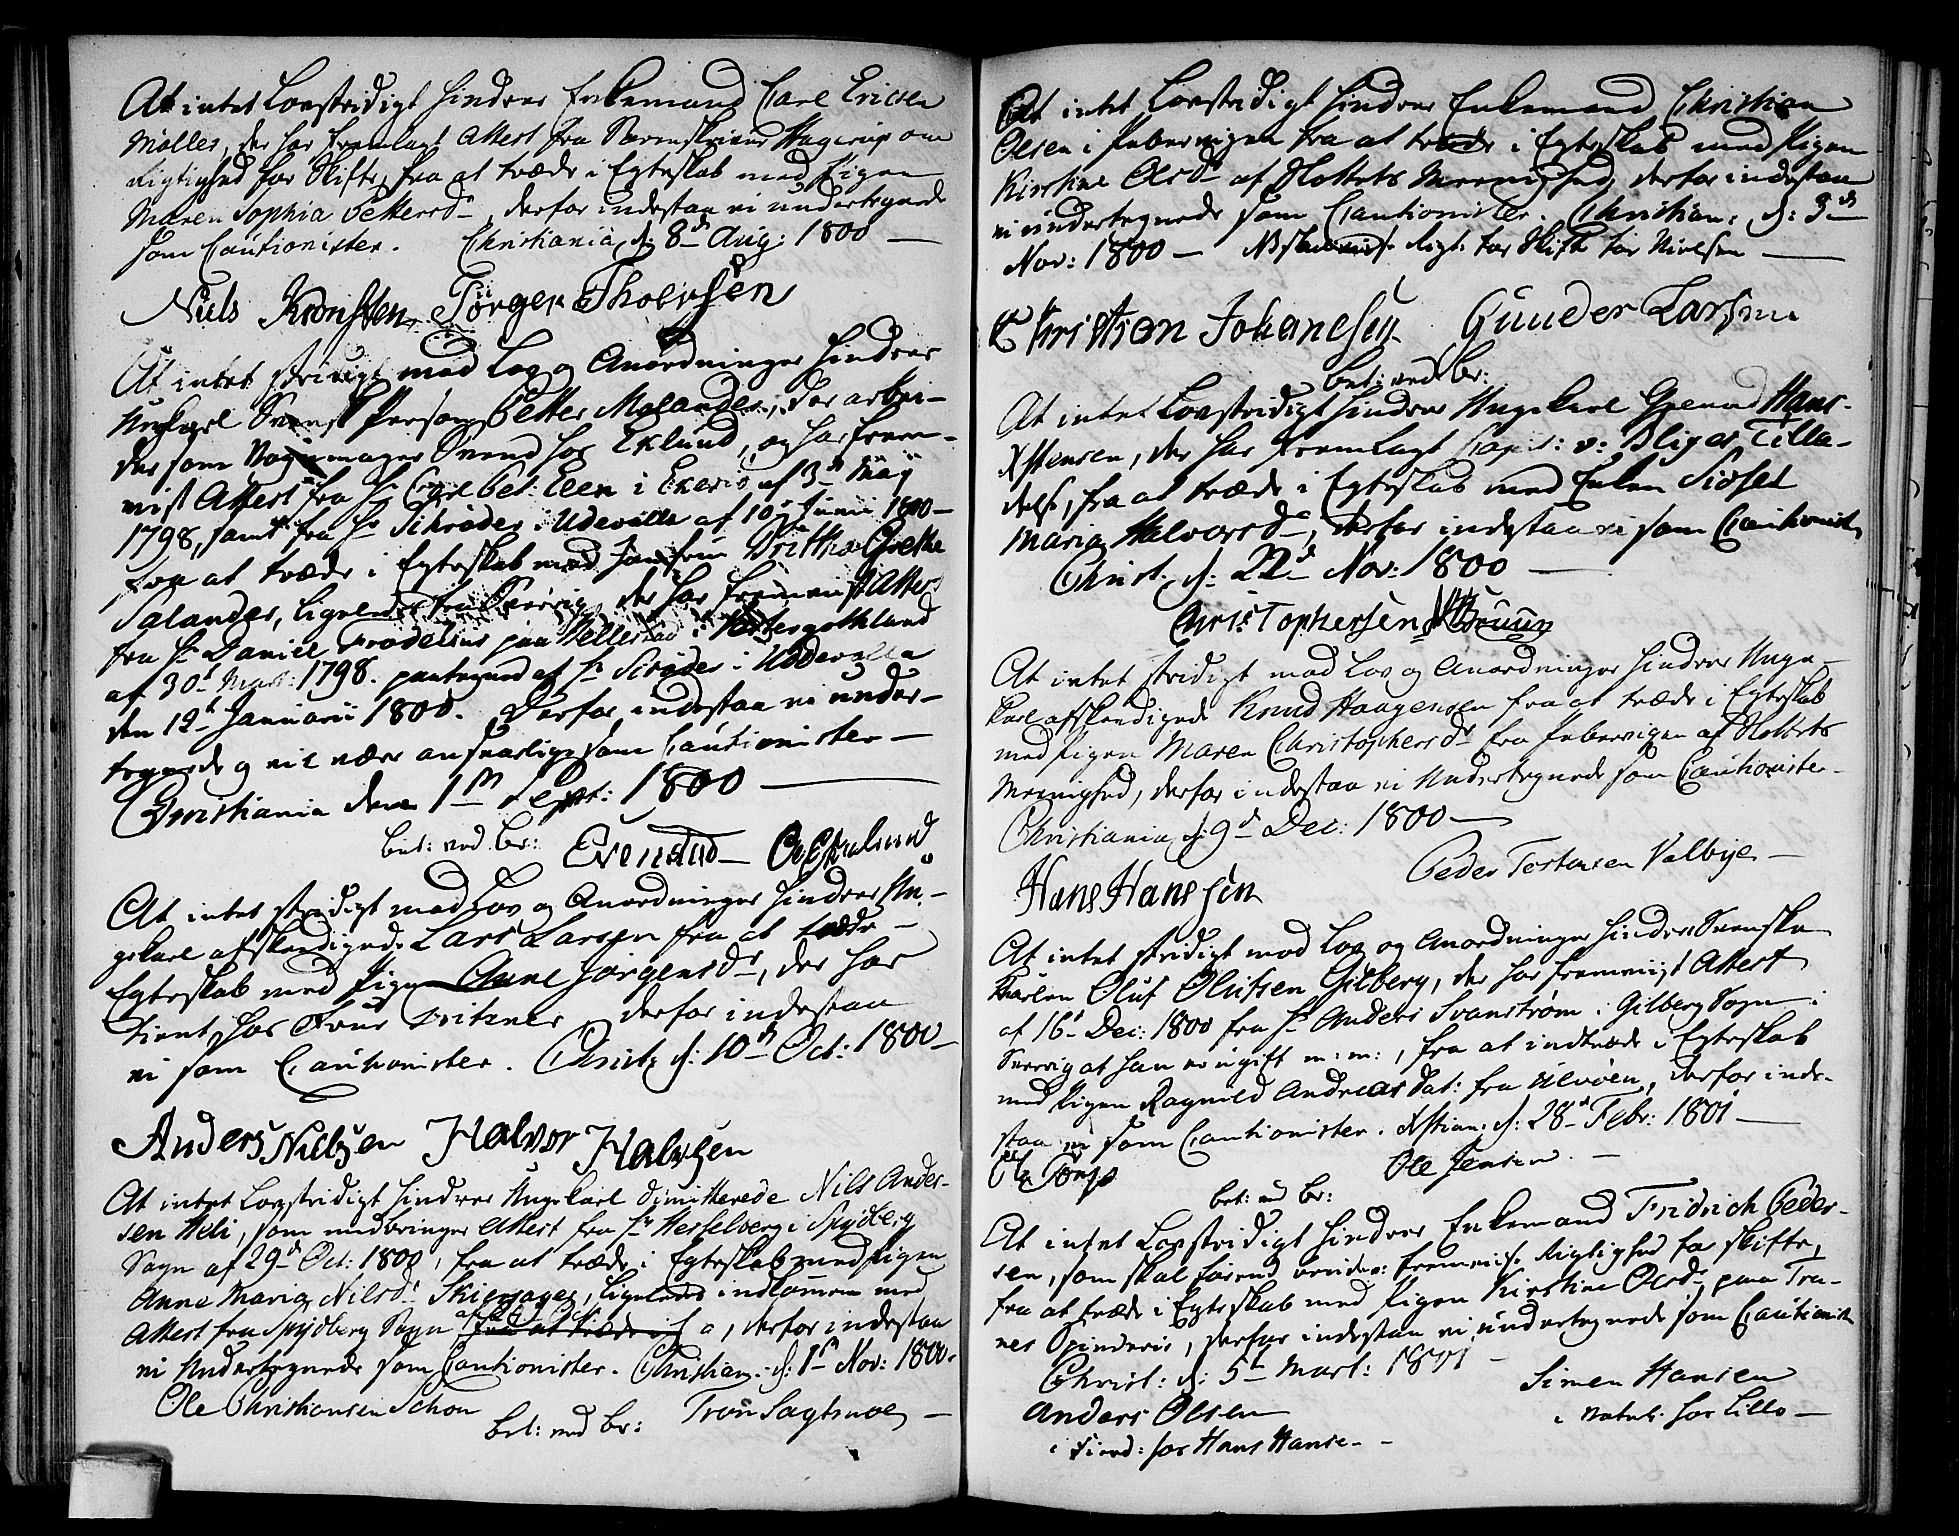 At intet Lovstridigt hindrer Enkemand Carl Ericsen
Møller, der har fremlagt Attest fra Sorenskriver Hagerup om
Rigtighed for Skifte, fra at træde i Egteskab med Pigen
Maren Sophia Pettersdr, derfor indestaa vi undertegnede
som Cautionister. Christiania, d: 8de Aug: 1800 —
Niels Kronsten, Jørgen Thoersen
At intet stridigt mod Lov og Anordninger hindrer
Ungkarl Svensk Person Petter Molander, der arbei-
der som Vognmager Svend hos Eklund, og har frem-
viist Attest fra Hr Carl Een i af 3de Maij
1798, samt fra Hr Schrøder i Udevalla af 10de Junii 1800 —
fra at træde i Egteskab med Jomfrue Grethe
Salander, ligeledes fra Sverrig, der har fremviist Attest
fra Hr Daniel Frodelius paa i Vestergothland
af 30te Mart: 1798. paategned af Hr Scrøder i Uddevalla
den 12te Januarii 1800. Derfor indestaa vi under-
tegnede og vil være ansvarlige som Cautionister —
Christiania den 1ste Sept: 1800 —
bet: ved br: Evenstad — O. Eklund
At intet stridigt mod Lov og Anordninger hindrer Un-
gekarl afskedigede Lars Larsen fra at træde —
Egteskab med Pigen Anne Jørgensdr, der har
tient hos Frue , derfor indestaa
vi som Cautionister. Christ: d: 10de Oct: 1800 —
Anders Nielsen Halvor Halvsen
At intet Lovstridigt hindrer Ungekarl dimitterede Nils Ander-
sen Heli, som medbringer Attest fra Hr Hesselberg i Spydberg
Sogn af 29de Oct: 1800, fra at træde i Egteskab med Pigen
Anne Maria Nilsdr Skiersager, ligeledes indkommen med
Attest fra Spydberg Sogn af 29de Oct: fra at træde i f a, derfor indestaa
vi Undertegnede som Cautionister. Christian: d: 1ste Nov: 1800.
Ole Christiansen Schou
bet: ved br: Tron Sagtmoe —
At intet Lovstridigt hindrer Enkemand Christian
Olsen i Pebervigen fra at træde i Egteskab med Pigen
Kirstine Olsdr af Slottets Meenighed, derfor indestaa
vi undertegnede som Cautionister. Christian: d: 3de
Nov: 1800 — NB Rigt: for Skifte for Nielsen —
Christian Johanesen Gunder Larsen
bet: ved br:
At intet Lovstridigt hindrer Ungekarl Hans
Xstensen, der har fremlagt Capit: v: Bliges Tilla-
delse, fra at træde i Egteskab med Enken Sidsel
Maria Halvorsdr, derfor indestaa vi som Cautionister
Christ: d: 22de Nov: 1800 —
Christophersen Bruun
At intet stridigt mod Lov og Anordninger hindrer Unge-
karl afskedigede Knud Haagensen fra at træde i Egteskab
med Pigen Maren Christophersdr fra Pebervigen af Slottets
Meenighed, derfor indestaa vi Undertegnede som Cautionister —
Christiania d: 9de Dec: 1800 —
Peder Torstensen Valbye —
Hans Hanssen
At intet stridigt mod Lov og Anordninger hindrer Svenske
Karlen Oluf Olufsen Gilberg, der har fremviist Attest
af 16de Dec: 1800 fra Hr Anders Svanstrøm i Gilberg Sogn i
Sverrig at han er ugift m: m:, fra at indtræde i Egteskab
med Pigen Ragnild Andreas Dat: fra Ulvøen, derfor inde-
staa vi som Cautionister. Xstian: d: 28de Febr: 1801 —
Ole Jensen. —
bet: ved br:
At intet Lovstridigt hindrer Enkemand Fridrich Peder-
sen, som skal forend fremvise Rigtighed for skifte,
fra at træde i Egteskab med Pigen Kirstine Olsdr paa Tra-
nes Spinderie, derfor indestaa vi undertegnede som Cautionister
Christ: d: 5te Mart: 1801 —
Simen Hansen
Anders Olsen
hos Lillo —
hos Hans Hanse —